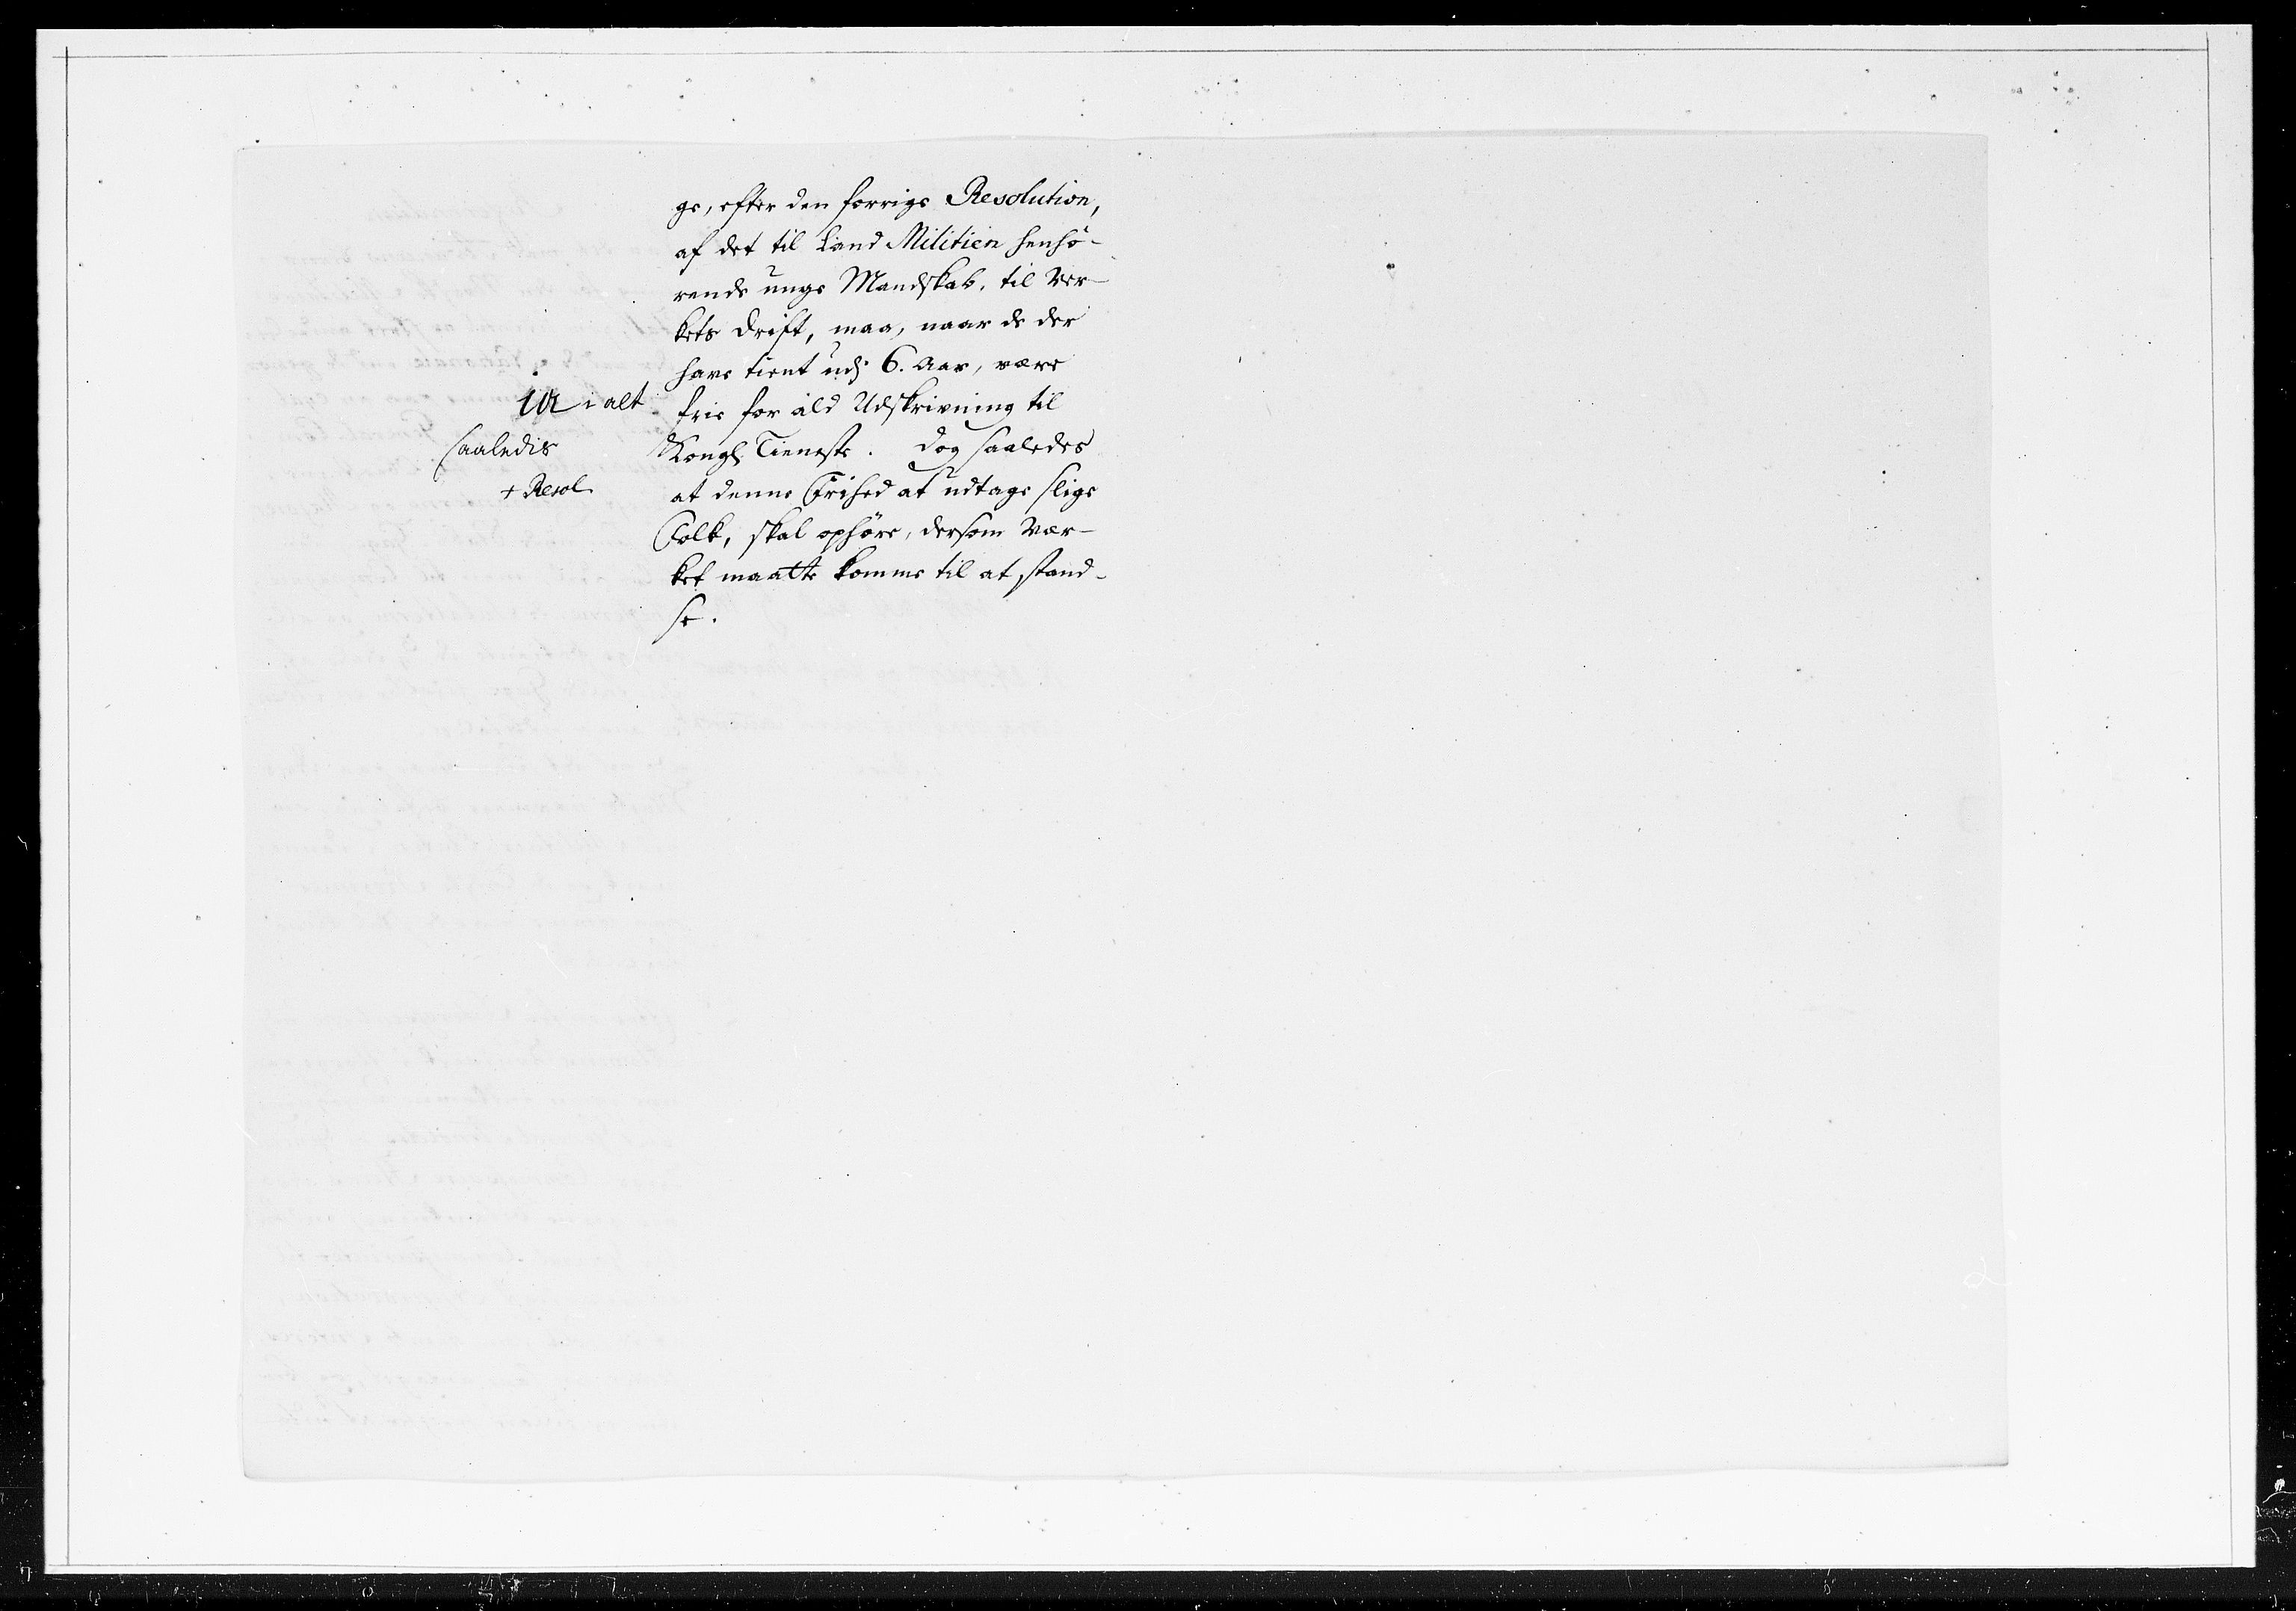 ge, efter den forrige Resolution,
af det til Land Militien henhö-
rende unge Mandskab, til Ver-
kets Drift, maa, naar de der
have tient udj 6. Aar, være
i alt
frie for ald Udskrivning til
Saaledis
Kongl Tieneste. Dog saaledes
+ Resol
at denne Frihed at udtage slige
Folk, skal ophöre, dersom Vær-
ket maatte komme til at stand-
se.